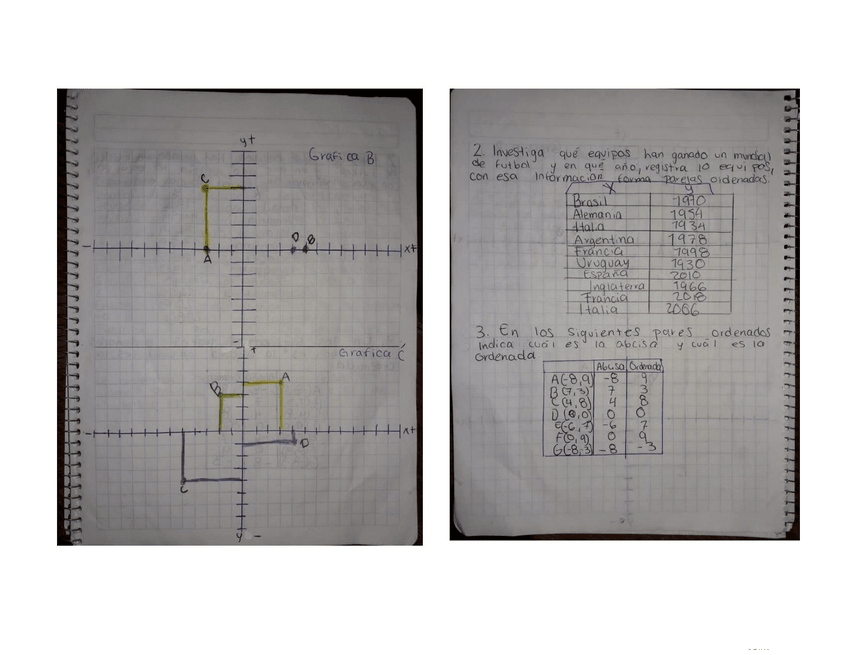 y+
Grafica B
C
D
B
-
A
x+
+
Grafica C
B
A
-
x+
D
C
y -
2. Investiga qué equipos han ganado un mundial
de futbol y en qué año, registra 10 equipos,
con esa información forma parejas ordenadas.
X y
Brasil 1970
Alemania 1954
Italia 1934
Argentina 1978
Francia 1998
Uruguay 1930
España 2010
Inglaterra 1966
Francia 2018
Italia 2006
3. En los siguientes pares ordenados
indica cuál es la abcisa y cuál es la
ordenada
Abcisa Ordenada
A(-8,9) -8 9
B(7,3) 7 3
C(4,8) 4 8
D(0,0) 0 0
E(-6,7) -6 7
F(0,9) 0 9
G(-8,-3) -8 -3